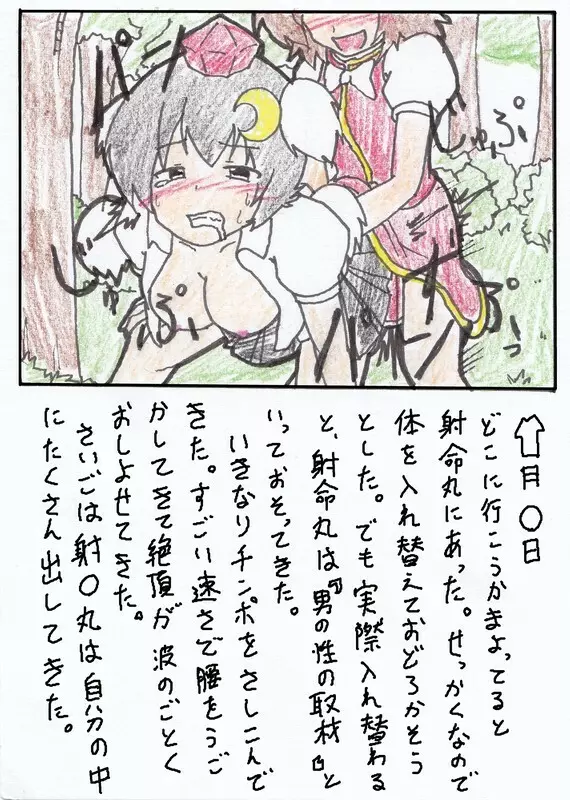 パーン
じゅぷ
ぷ
じゅぷ
ぷーっ
月〇日
どこに行こうかまよってると
射命丸にあった。せっかくなので
体を入れ替えておどろかそう
とした。でも実際入れ替わる
と、射命丸は『男の性の取材』と
いっておそってきた。
いきなりチンポをさしこんで
きた。すごい速さで腰をうご
かしてきて絶頂が波のごとく
おしよせてきた。
さいごは射〇丸は自分の中
にたくさん出してきた。